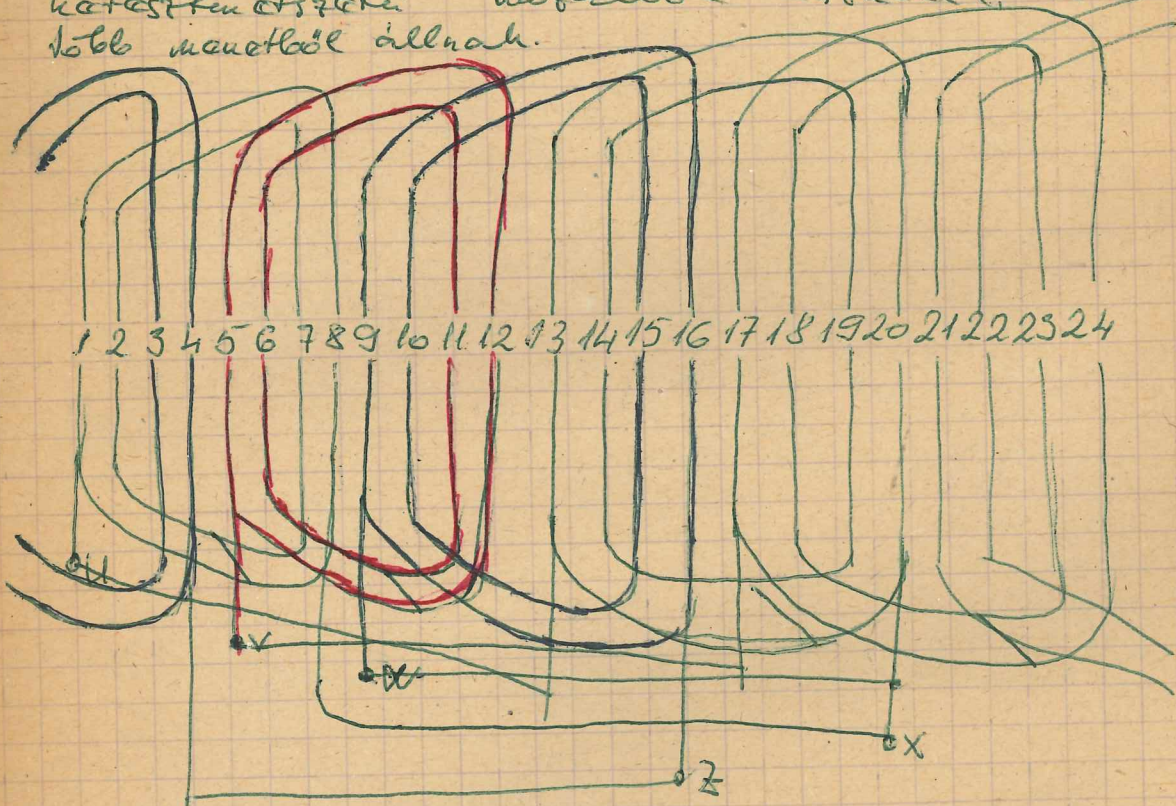 több menetből állnak.
1 2 3 4 5 6 7 8 9 10 11 12 13 14 15 16 17 18 19 20 21 22 23 24
U
V
W
X
Z